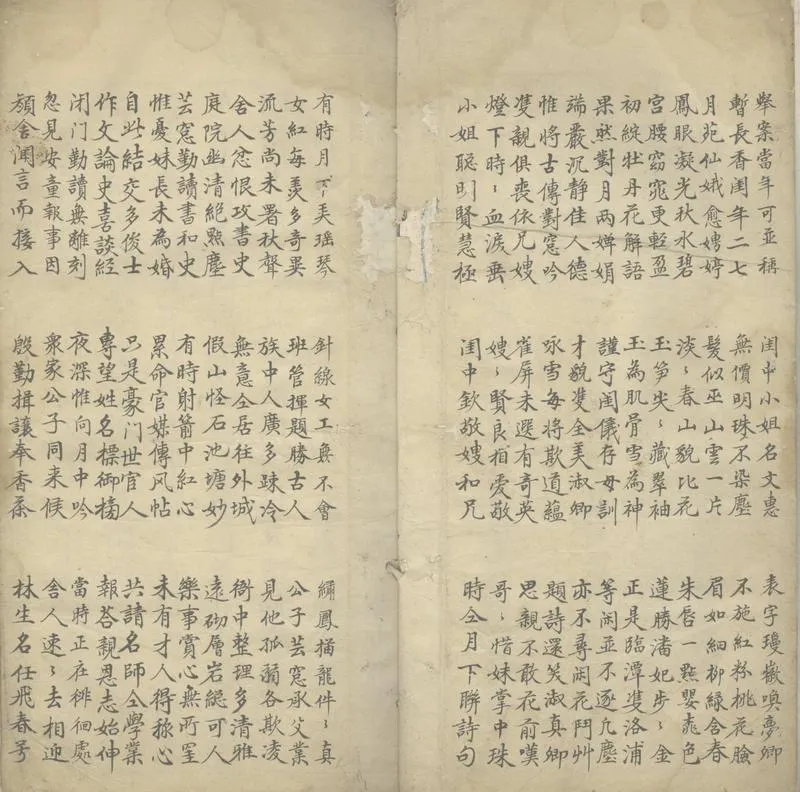 舉案當年可並稱 閨中小姐名文惠 表字瓊嶶喚夢卿
暫長香閨年二七 無價明珠不染塵 不施紅粉桃花臉
月苑仙娥愈嬝婷 髮似巫山雲一片 眉如細柳綠含春
鳳眼凝光秋水碧 淡〻春山貌比花 朱唇一點嬰桃色
宮腰窈窕更輕盈 玉笋尖〻藏翠袖 蓮勝潘妃步〻金
初綻牡丹花解語 玉為肌骨雪為神 正是臨潭雙洛浦
果然對月两嬋娟 謹守閨儀存母訓 等闲並不逐凡塵
端嚴沉静佳人德 才貌雙全美淑卿 亦不尋闲花鬥艸
惟將古傳對窓吟 咏雪每將欺道蘊 題詩還笑淑真卿
雙親俱喪依兄嫂 雀屏未選有奇英 思親不敢花前嘆
燈下時〻血淚垂 嫂〻賢良相愛敬 哥〻惜妹掌中珠
小姐聪明賢慧極 閨中欽敬嫂和兄 時仝月下聯詩句
有時月下美瑶琴 針線女工無不會 繡鳳描龍件〻真
女紅每羡多奇異 班管揮題勝古人 公子芸窓承父業
流芳尚未署秋聲 族中人廣多踈冷 見他孤弱各欺凌
舍人忿恨攻書史 無意仝居往外城 衙中整理多清雅
庭院幽清絕點塵 假山怪石池塘妙 遠砌層岩總可人
芸窓勤讀書和史 有時射箭中紅心 樂事賞心無所
惟憂妹長未為婚 累命官媒傳风帖 未有才人得称心
自此結交多俊士 只是豪門世官人 共請名師仝學業
作文論史喜談經 專望姓名標御榜 報荅親恩志始伸
闭门勤讀無離刻 夜深惟向月中吟 當時正在徘徊處
忽見安童報事因 衆家公子同来候 舍人速〻去相迎
舍聞言而接入 殷勤揖讓奉香茶 林生名任飛春号